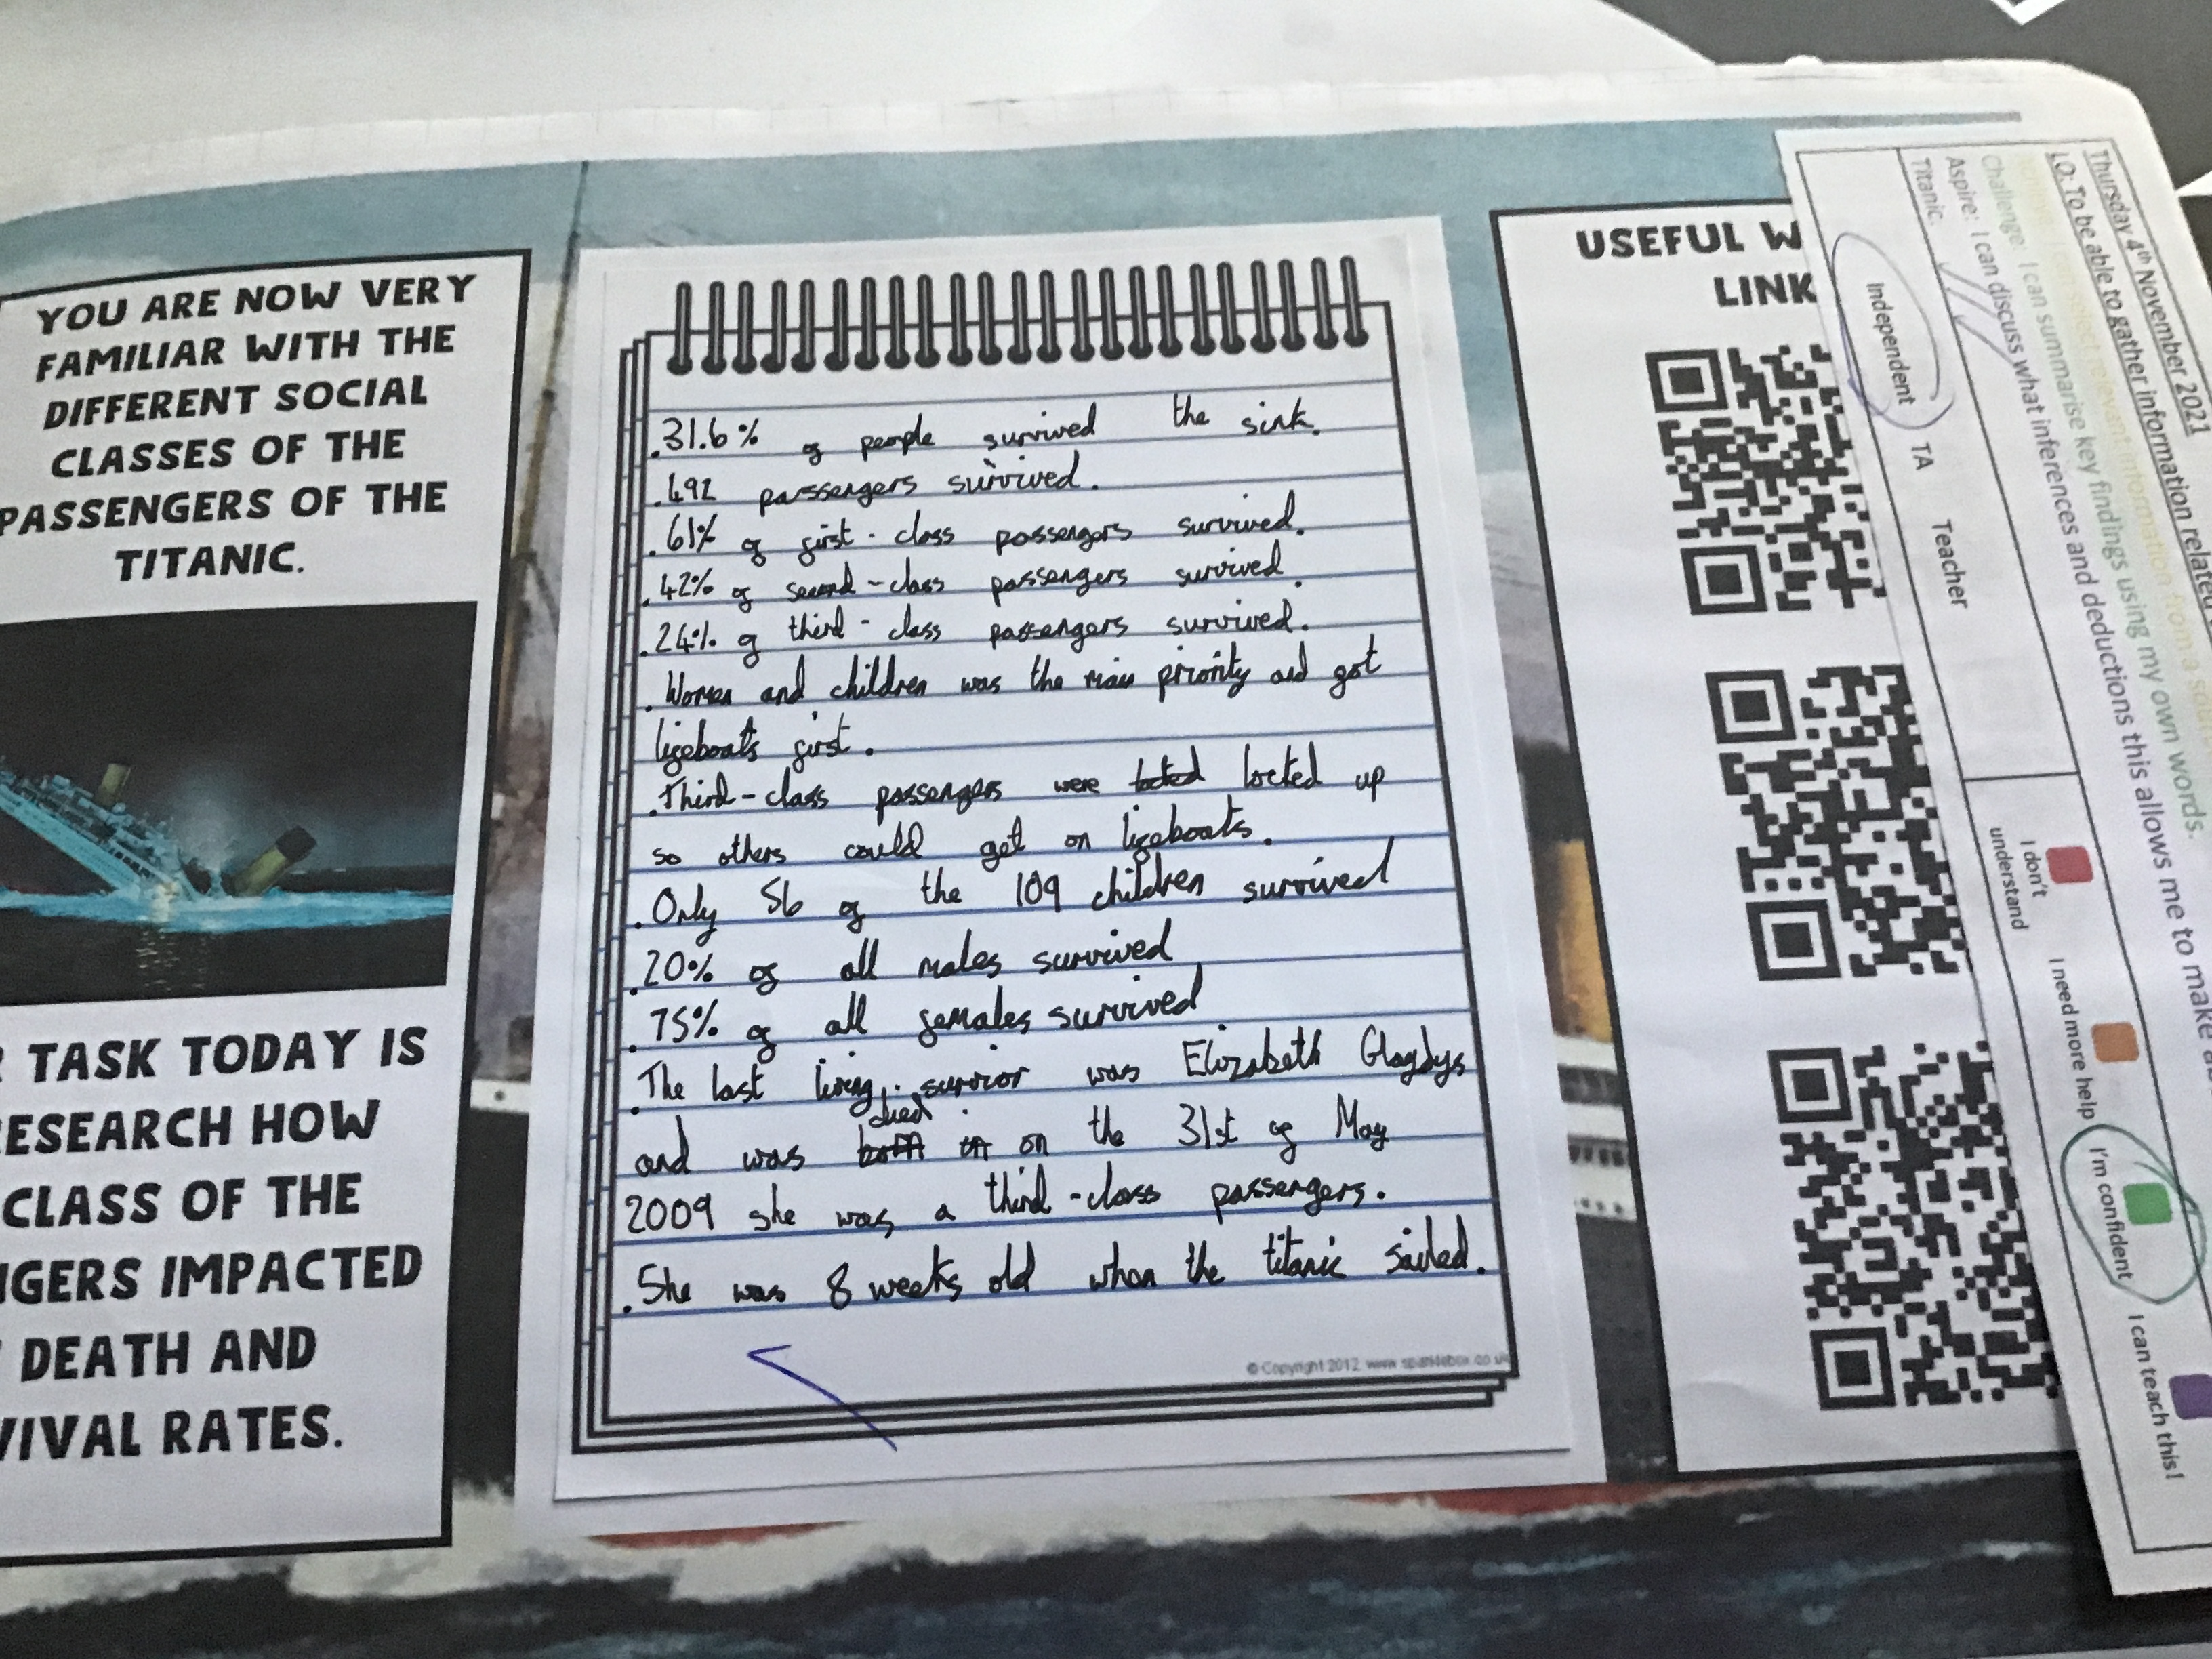 YOU ARE NOW VERY
FAMILIAR WITH THE
DIFFERENT SOCIAL
CLASSES OF THE
PASSENGERS OF THE
TITANIC.
TASK TODAY IS
ESEARCH HOW
CLASS OF THE
NGERS IMPACTED
DEATH AND
VIVAL RATES.
.31.6% of people survived the sink.
.492 passsengers survived.
.61% of first-class passengers survived.
.42% of second-class passengers survived.
.24% of third-class passengers survived.
.Women and children was the main priority and got
lifeboats first.
.Third-class passengers were locked locked up
so others could get on lifeboats.
.Only 56 of the 109 children survived
.20% of all males survived
.75% of all females survived
.The last living survior was Elizabeth Glagdys
died
and was born in on the 31st of May
2009 she was a third-class passengers.
.She was 8 weeks old when the titanic sailed.
© Copyright 2012 www.sparklebox.co.uk
USEFUL W
LINK
Thursday 4th November 2021
LO: To be able to gather information related
select relevant information from a
Challenge: I can summarise key findings using my own words.
Aspire: I can discuss what inferences and deductions this allows me to make
Titanic.
Independent TA Teacher
I don't
understand
I need more help
I'm confident
I can teach this!